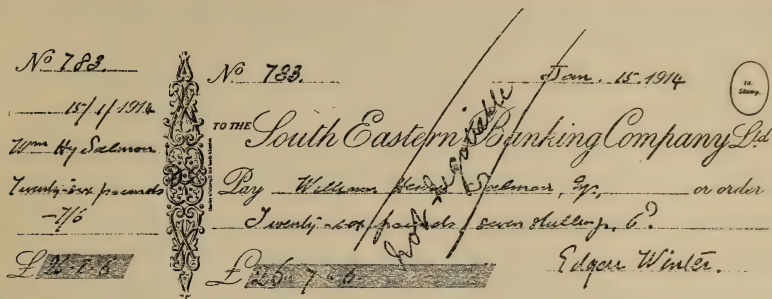 No 783.
15/1/1914
Wm Hy Salmon
Twenty-six pounds
-7/6
£ 26-7-6
No 783.
Jan. 15. 1914
1d. Stamp.
TO THE South Eastern Banking Company Ltd
Pay William Henry Salmon, Esq, or order
Twenty-six pounds, seven shillings, 6d
£ 26-7-6
Edgar Winter.
Not Negotiable